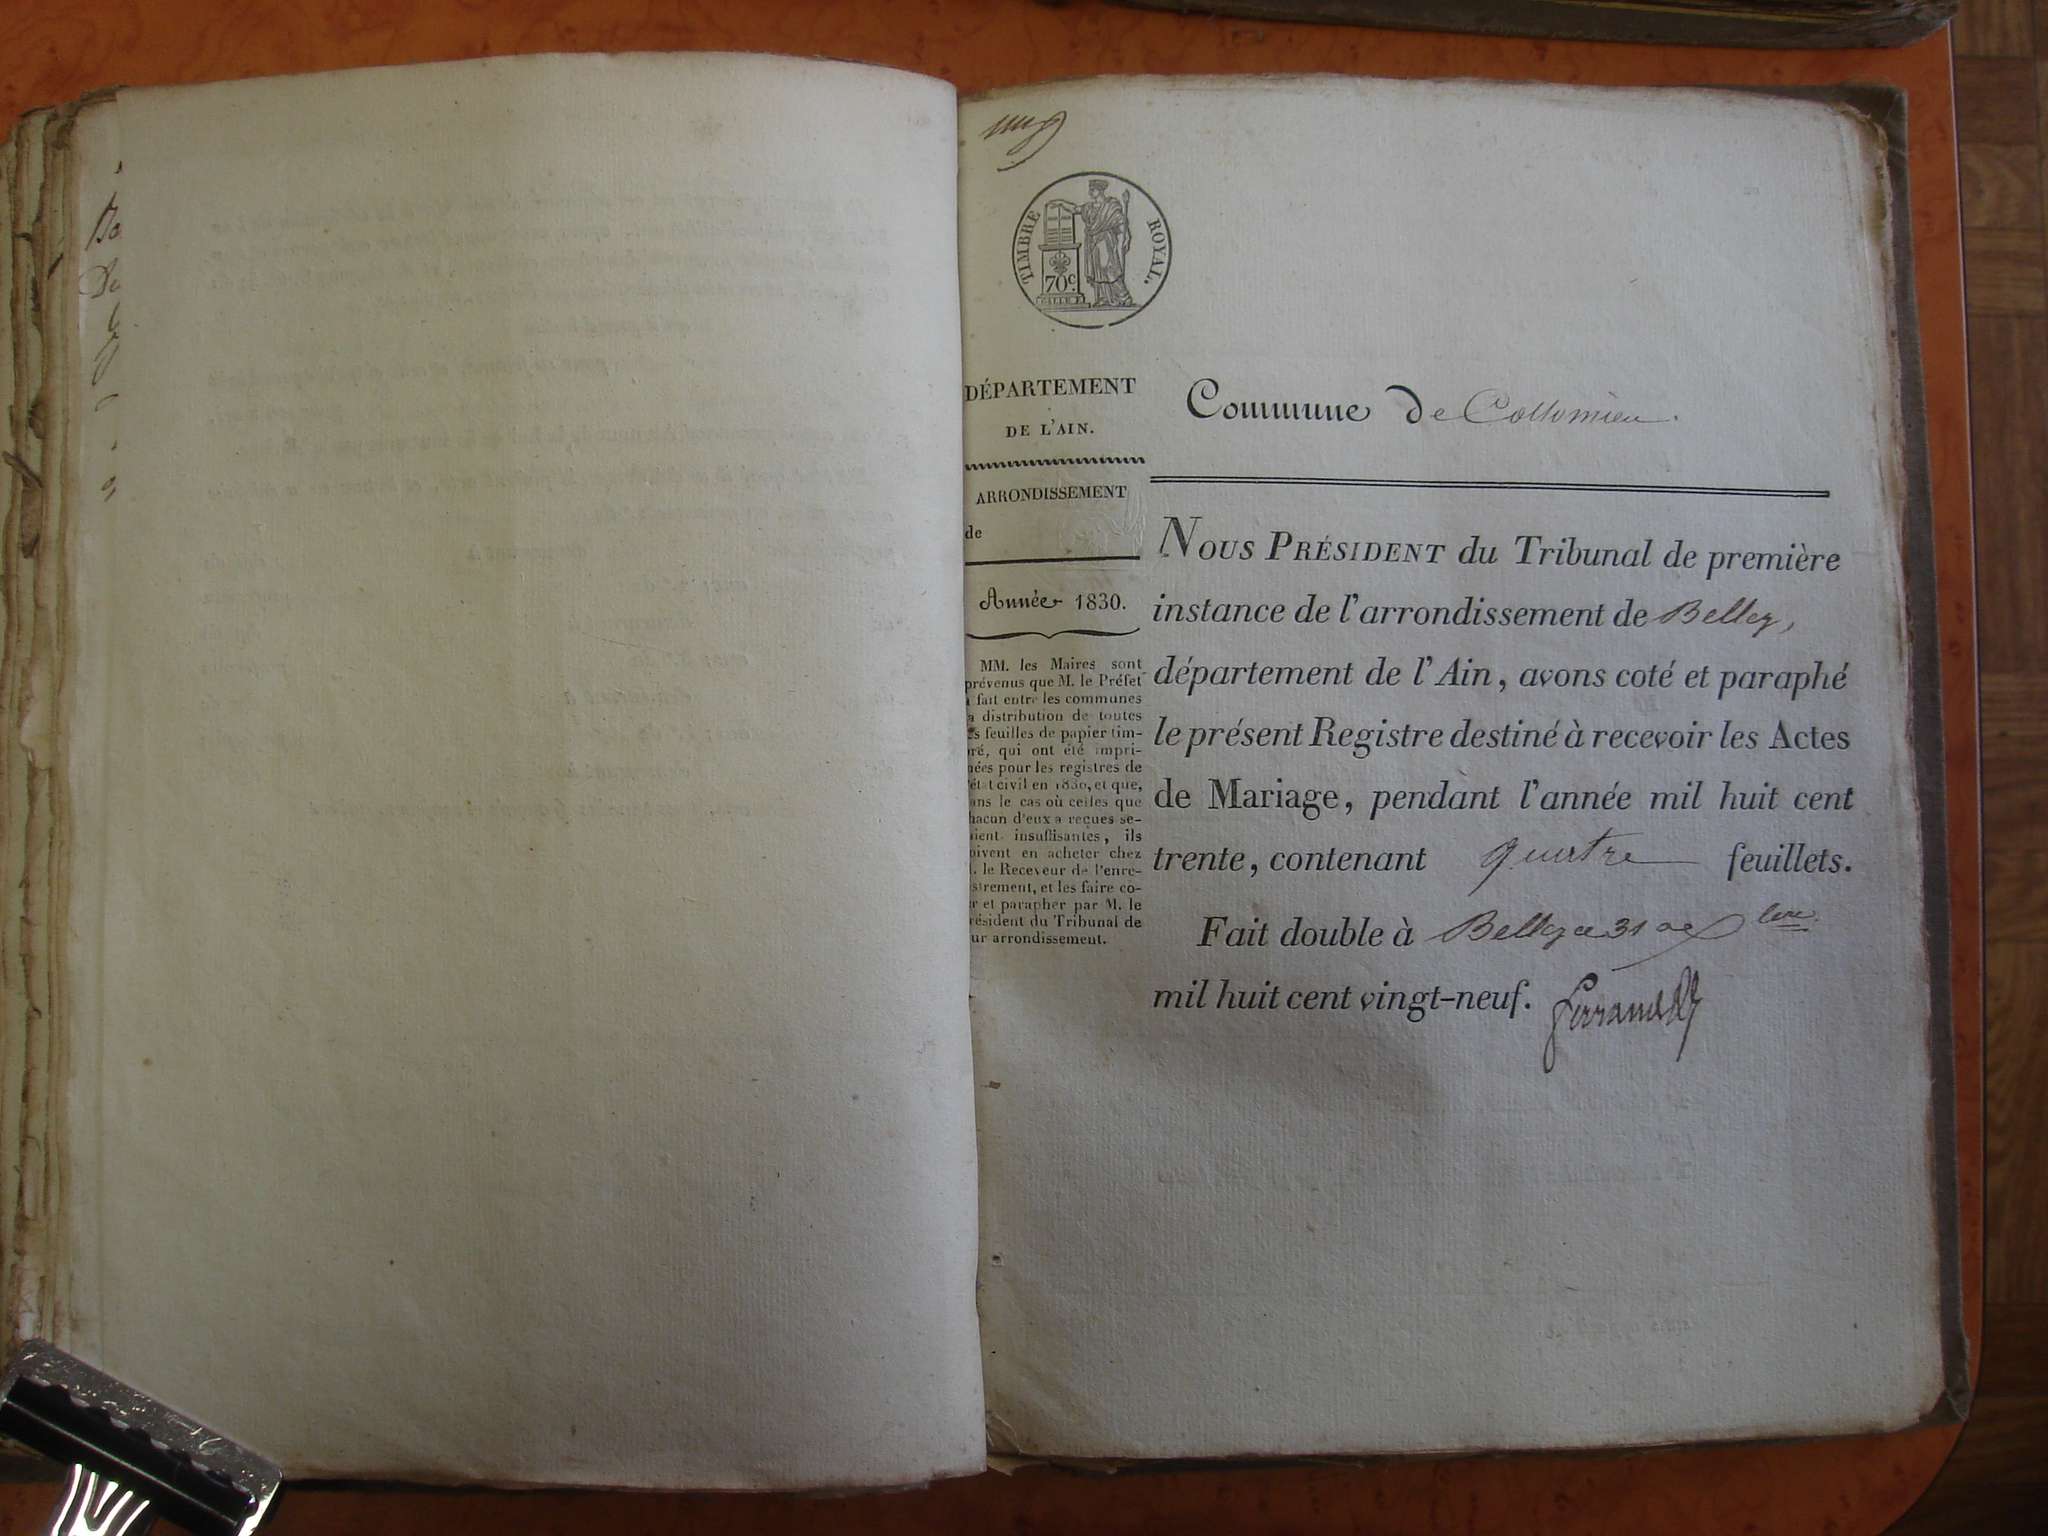 TIMBRE ROYAL.
70c.
DÉPARTEMENT
DE L'AIN.
ARRONDISSEMENT
de
Année 1830.
MM. les Maires sont
prévenus que M. le Préfet
a fait entre les communes
la distribution de toutes
les feuilles de papier tim-
bré, qui ont été impri-
mées pour les registres de
l'état civil en 1830, et que,
dans le cas où celles que
chacun d'eux a reçues se-
raient insuffisantes, ils
doivent en acheter chez
M. le Receveur de l'enre-
gistrement, et les faire co-
ter et parapher par M. le
Président du Tribunal de
leur arrondissement.
Commune de Collomieu.
NOUS PRÉSIDENT du Tribunal de première
instance de l'arrondissement de Belley,
département de l'Ain, avons coté et paraphé
le présent Registre destiné à recevoir les Actes
de Mariage, pendant l'année mil huit cent
trente, contenant quatre feuillets.
Fait double à Belley ce 31 xbre
mil huit cent vingt-neuf.